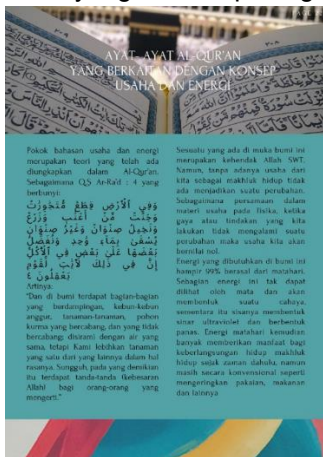 AYAT-AYAT AL-QUR'AN
YANG BERKAITAN DENGAN KONSEP
USAHA DAN ENERGI
Pokok bahasan usaha dan energi
merupakan teori yang telah ada
diungkapkan dalam Al-Qur'an.
Sebagaimana Q.S Ar-Ra'd : 4 yang
berbunyi:
وَفِي ٱلْأَرْضِ قِطَعٌ مُّتَجَٰوِرَٰتٌ
وَجَنَّٰتٌ مِّنْ أَعْنَٰبٍ وَزَرْعٌ
وَنَخِيلٌ صِنْوَانٌ وَغَيْرُ صِنْوَانٍ
يُسْقَىٰ بِمَآءٍ وَٰحِدٍ وَنُفَضِّلُ
بَعْضَهَا عَلَىٰ بَعْضٍ فِي ٱلْأُكُلِ
إِنَّ فِي ذَٰلِكَ لَأٓيَٰتٍ لِّقَوْمٍ
يَعْقِلُونَ ٤
Artinya:
"Dan di bumi terdapat bagian-bagian
yang berdampingan, kebun-kebun
anggur, tanaman-tanaman, pohon
kurma yang bercabang, dan yang tidak
bercabang; disirami dengan air yang
sama, tetapi Kami lebihkan tanaman
yang satu dari yang lainnya dalam hal
rasanya. Sungguh, pada yang demikian
itu terdapat tanda-tanda (kebesaran
Allah) bagi orang-orang yang
mengerti."
Sesuatu yang ada di muka bumi ini
merupakan kehendak Allah SWT.
Namun, tanpa adanya usaha dari
kita sebagai makhluk hidup tidak
ada menjadikan suatu perubahan.
Sebagaimana persamaan dalam
materi usaha pada fisika, ketika
gaya atau tindakan yang kita
lakukan tidak mengalami suatu
perubahan maka usaha kita akan
bernilai nol.
Energi yang dibutuhkan di bumi ini
hampir 99% berasal dari matahari.
Sebagian energi ini tak dapat
dilihat oleh mata dan akan
membentuk suatu cahaya,
sementara itu sisanya membentuk
sinar ultraviolet dan berbentuk
panas. Energi matahari kemudian
banyak memberikan manfaat bagi
keberlangsungan hidup makhluk
hidup sejak zaman dahulu, namun
masih secara konvensional seperti
mengeringkan pakaian, makanan
dan lainnya